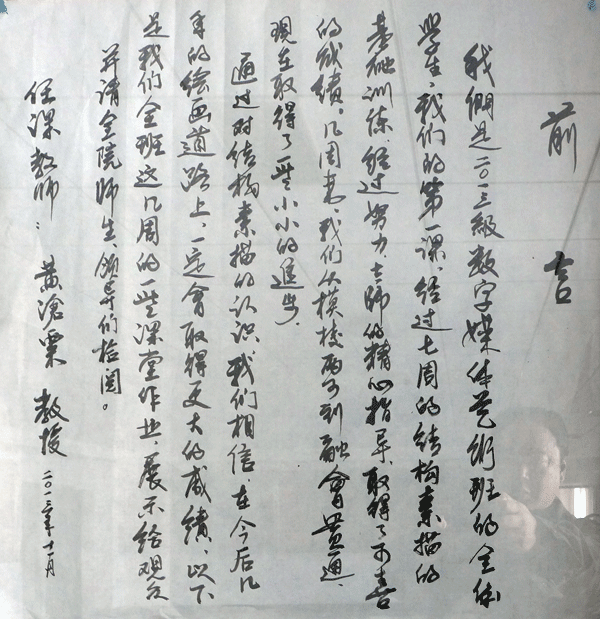 前言
我們是二〇一三級数字媒体艺術班的全体
学生,我们的第一课,经过七周的结构素描的
基础训练,经过努力,老师的精心指导,取得了可喜
的成绩。几周来,我们从模棱两可到融會贯通,
现在取得了一些小小的進步。
通过对结构素描的认识,我们相信,在今后几
年的绘画道路上,一定會取得更大的成绩,以下
是我们全班这几周的一些课堂作业,展示给观众
并请全院师生、领导们检阅。
任课教师:黄滄粟 教授
二〇一三年十一月